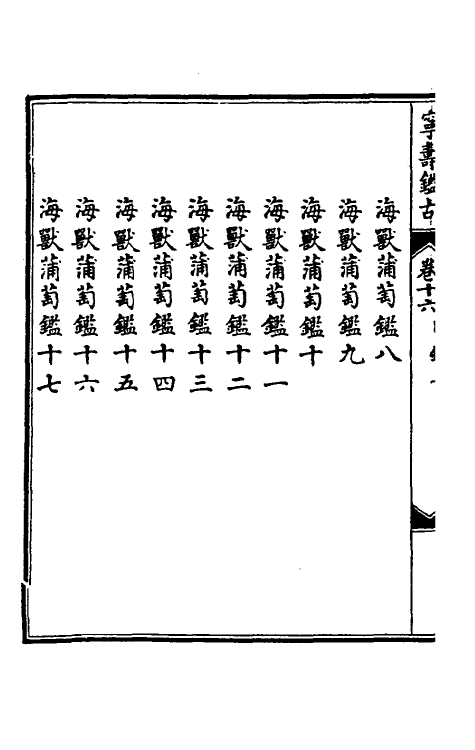 寧壽鑑古
卷十六
海獸蒲萄鑑八
海獸蒲萄鑑九
海獸蒲萄鑑十
海獸蒲萄鑑十一
海獸蒲萄鑑十二
海獸蒲萄鑑十三
海獸蒲萄鑑十四
海獸蒲萄鑑十五
海獸蒲萄鑑十六
海獸蒲萄鑑十七